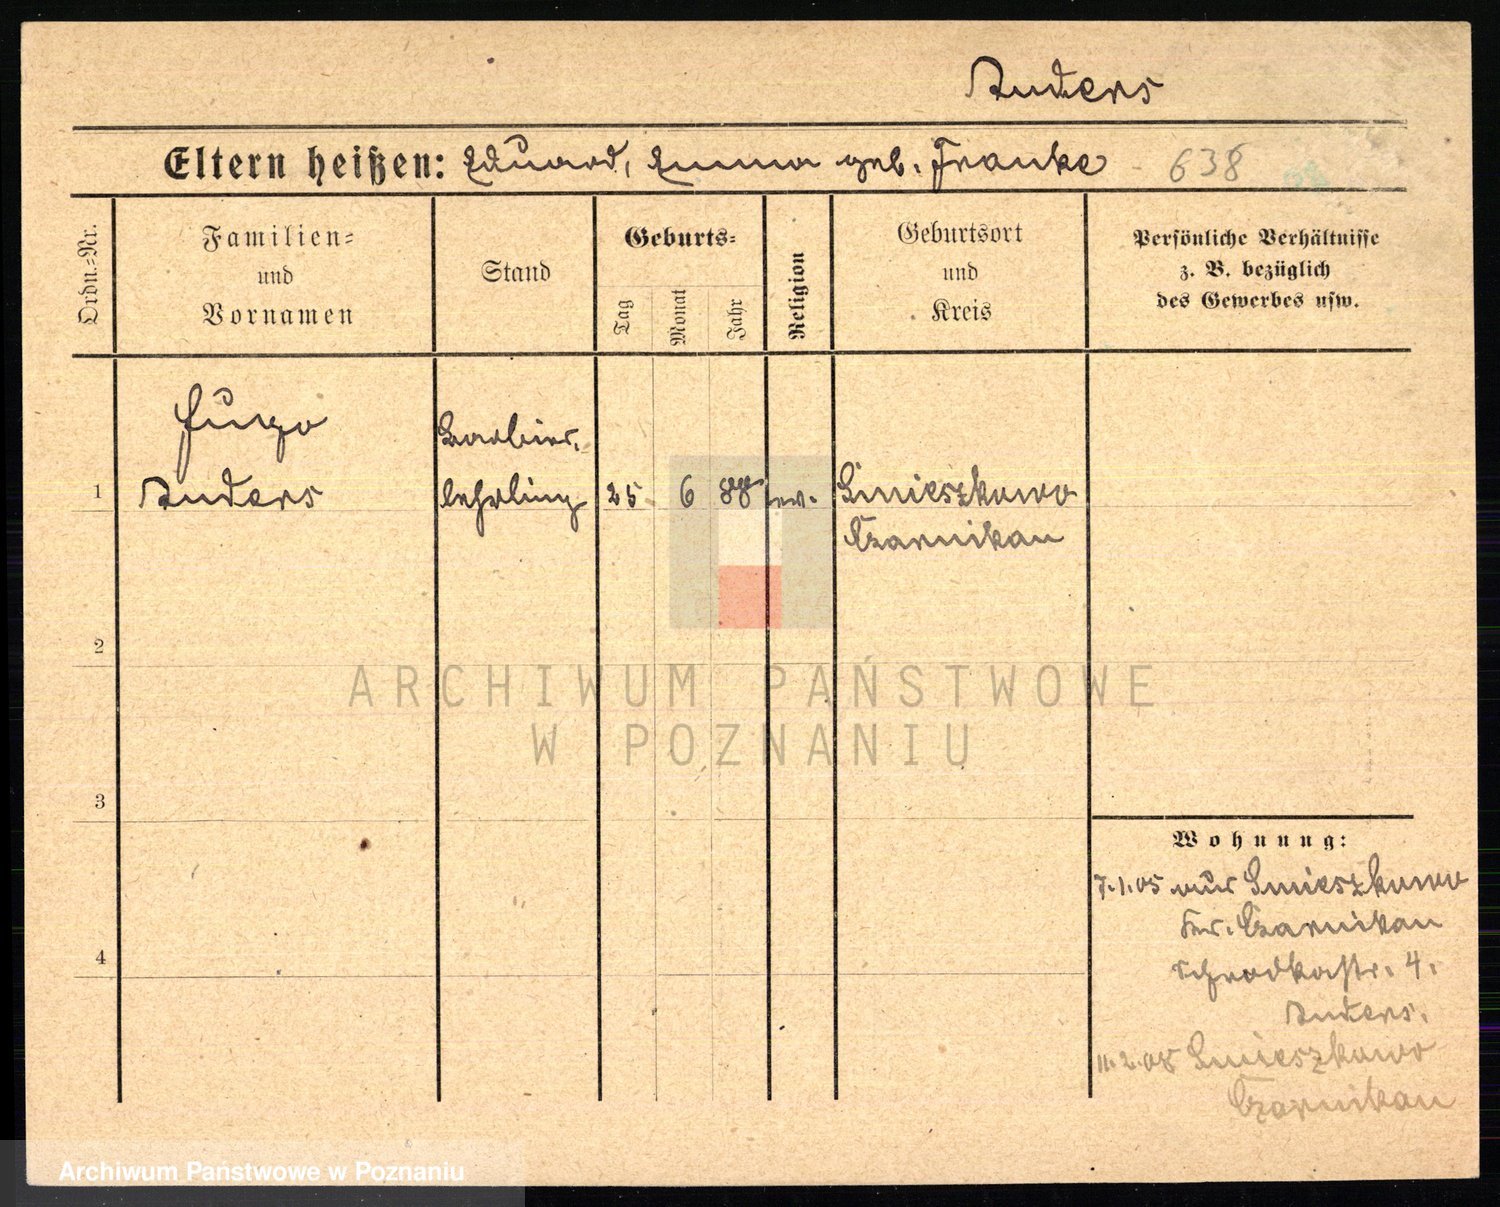 Anders
Eltern heißen: Eduard, Emma geb. Franke 638
Ordn.-Nr.
Familien-
und
Vornamen
Stand
Geburts-
Tag
Monat
Jahr
Religion
Geburtsort
und
Kreis
Persönliche Verhältnisse
z. B. bezüglich
des Gewerbes usw.
Hugo
Barbier-
1 Anders lehrling 25 6 88 ev. Smieszkowo
Czarnikau
2
ARCHIWUM PAŃSTWOWE
W POZNANIU
3
Wohnung:
7.1.05 aus Smieszkowo
Kr. Czarnikau
4
Schrodkastr. 4.
Anders.
11.2.08 Smieszkowo
Czarnikau
Archiwum Państwowe w Poznaniu